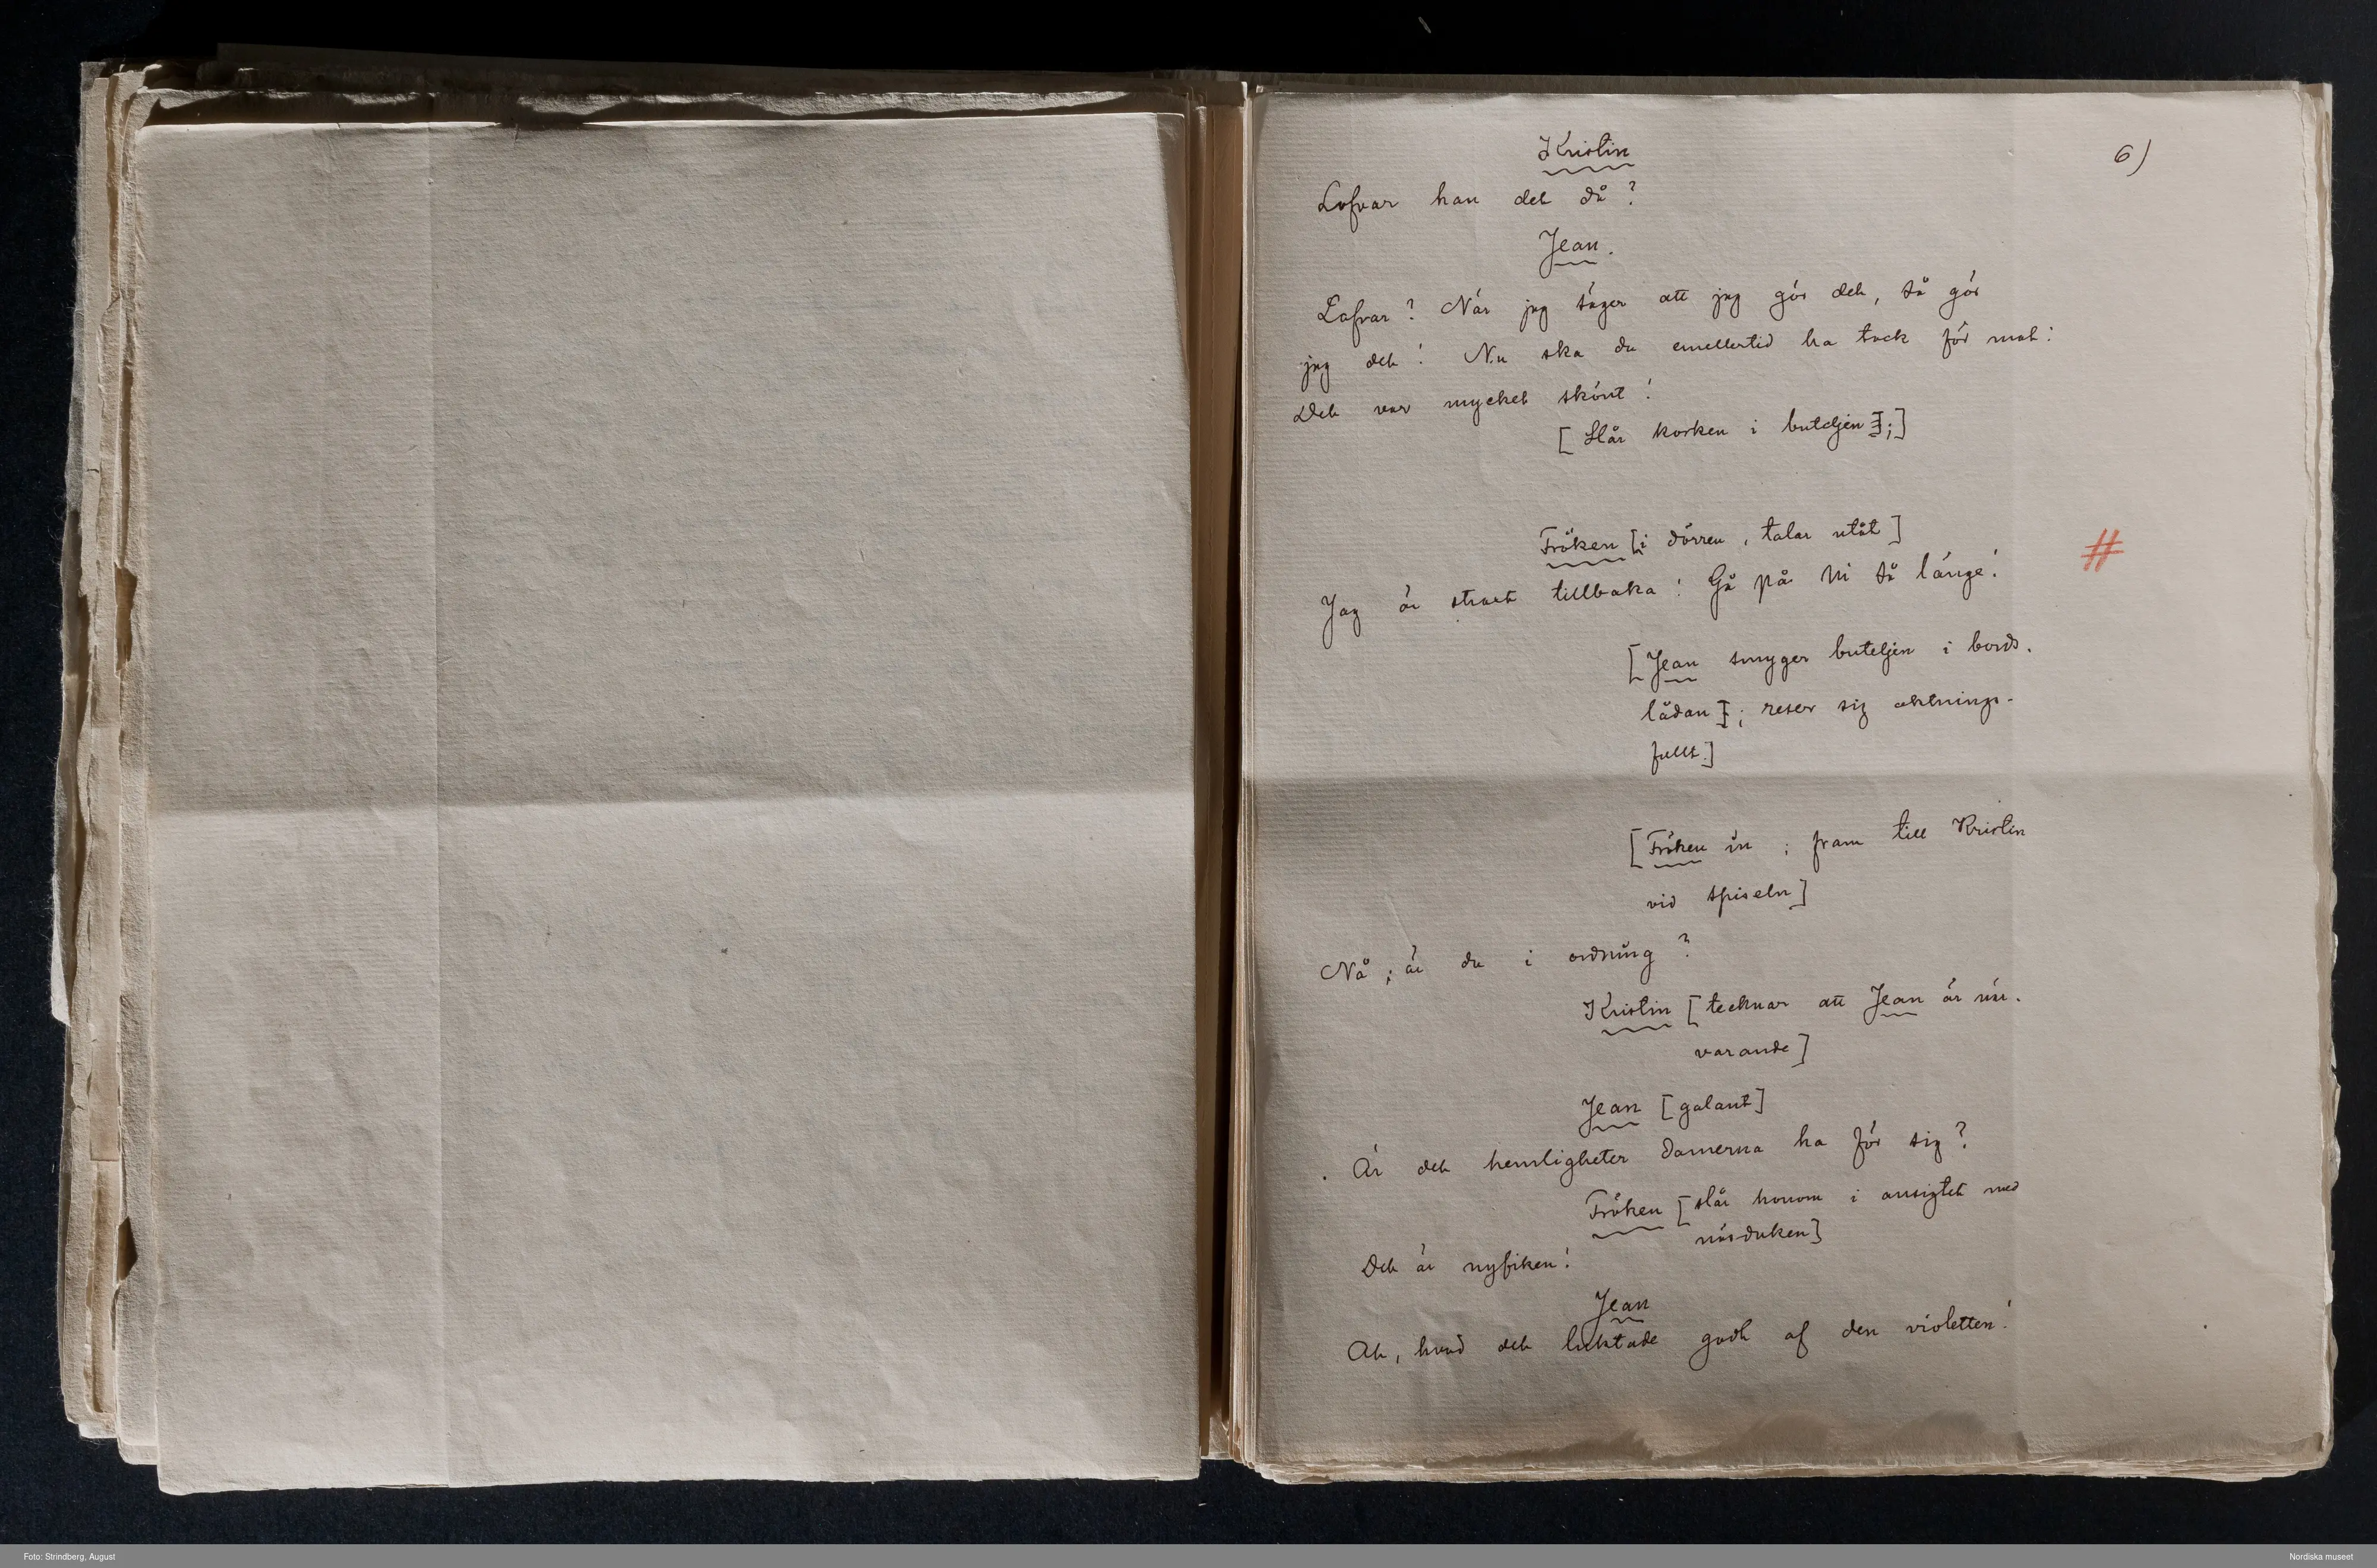 Kristin
6)
Lofvar han det då?
Jean.
Lofvar? När jag säger att jag gör det, så gör
jag det! Nu ska du emellertid ha tack för mat!
Det var mycket skönt!
[Slår korken i buteljen;]
Fröken [i dörren, talar utåt]
#
Jag är strart tillbaka! Gå på Ni så länge!
[Jean smyger buteljen i bords-
lådan; reser sig aktnings-
fullt.]
[Fröken in; fram till Kristin
vid spiseln]
Nå; är du i ordning?
Kristin [tecknar att Jean är när-
varande]
Jean [galant]
Är det hemligheter damerna ha för sig?
Fröken [slår honom i ansigtet med
näsduken]
Det är nyfiken!
Jean
Ah, hvad det luktade godt af den violetten!
Foto: Strindberg, August
Nordiska museet